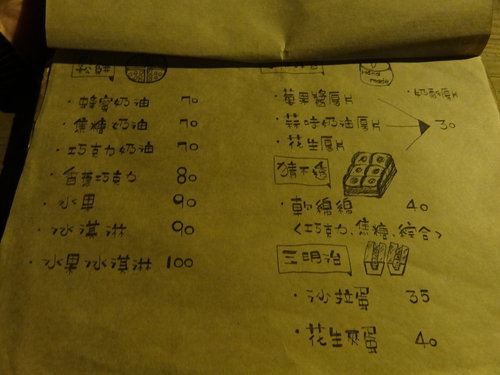 鬆餅
・蜂蜜奶油 70
・焦糖奶油 70
・巧克力奶油 70
・香蕉巧克力 80
・水果 90
・冰淇淋 90
・水果冰淇淋 100
・蘋果醬厚片
・奶酥厚片
・蒜味奶油厚片
・花生厚片
30
猜不透
・軟綿綿 40
<巧克力、焦糖、綜合>
三明治
・沙拉蛋 35
・花生夾蛋 40